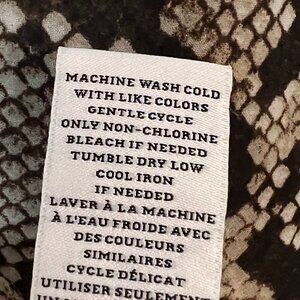 MACHINE WASH COLD
WITH LIKE COLORS
GENTLE CYCLE
ONLY NON-CHLORINE
BLEACH IF NEEDED
TUMBLE DRY LOW
COOL IRON
IF NEEDED
LAVER À LA MACHINE
À L'EAU FROIDE AVEC
DES COULEURS
SIMILAIRES
CYCLE DÉLICAT
UTILISER SEULEMENT